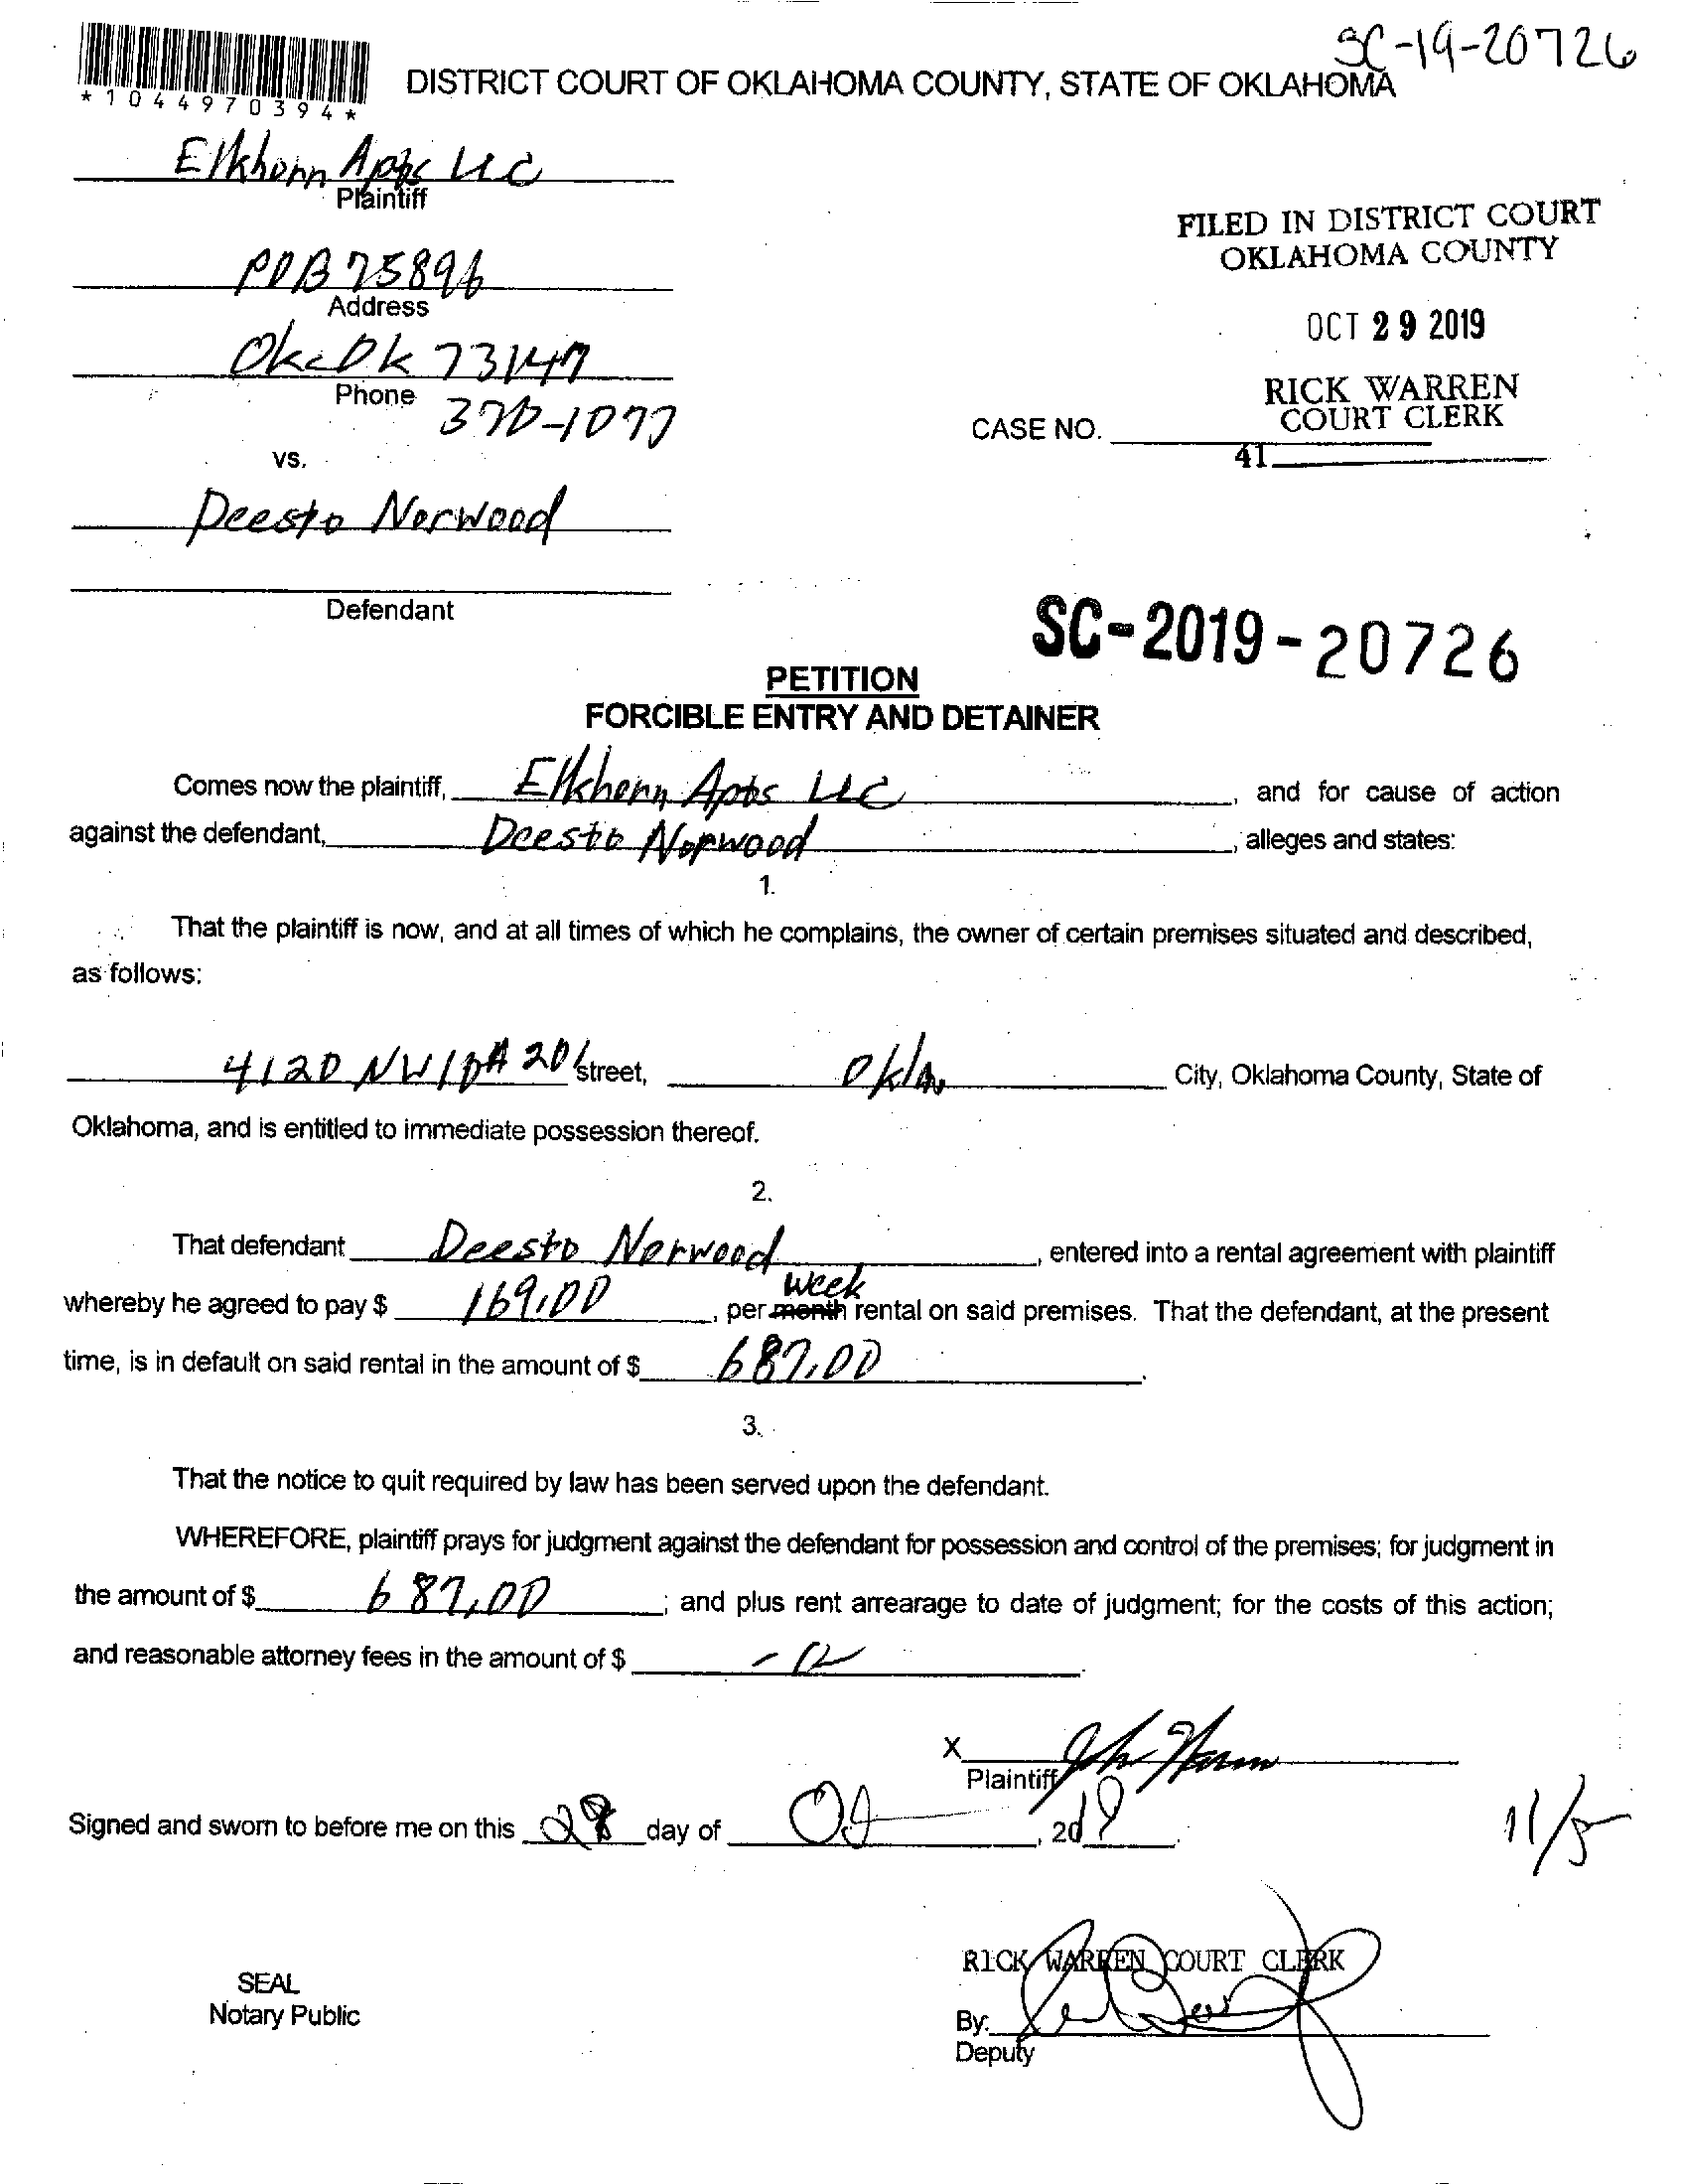 SC-19-20726
*1044970394*
DISTRICT COURT OF OKLAHOMA COUNTY, STATE OF OKLAHOMA
Elkhorn Apts LLC
Plaintiff
FILED IN DISTRICT COURT
OKLAHOMA COUNTY
POB 75896
Address
OCT 29 2019
Okc Ok 73147
Phone
370-1077
RICK WARREN
COURT CLERK
CASE NO.
41
vs.
Deesto Norwood
Defendant
SC-2019-20726
PETITION
FORCIBLE ENTRY AND DETAINER
Comes now the plaintiff, Elkhorn Apts LLC, and for cause of action
against the defendant, Deesto Norwood, alleges and states:
1.
That the plaintiff is now, and at all times of which he complains, the owner of certain premises situated and described,
as follows:
4120 NW10 # 201 street, Okla City, Oklahoma County, State of
Oklahoma, and is entitled to immediate possession thereof.
2.
That defendant Deesto Norwood, entered into a rental agreement with plaintiff
week
whereby he agreed to pay $ 169.00, per month rental on said premises. That the defendant, at the present
time, is in default on said rental in the amount of $ 687.00.
3.
That the notice to quit required by law has been served upon the defendant.
WHEREFORE, plaintiff prays for judgment against the defendant for possession and control of the premises; for judgment in
the amount of $ 687.00; and plus rent arrearage to date of judgment; for the costs of this action;
and reasonable attorney fees in the amount of $ .
X
Plaintiff
Signed and sworn to before me on this 28 day of Oct, 2019.
11/5
RICK WARREN COURT CLERK
SEAL
Notary Public
By:
Deputy